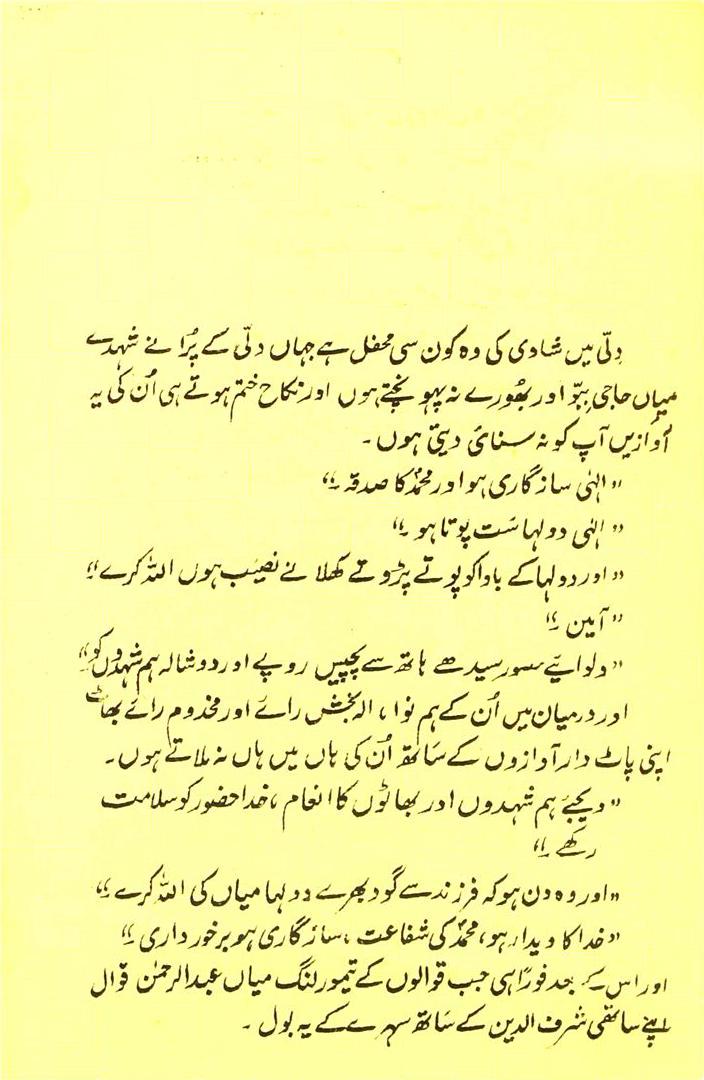 دلّی میں شادی کی وہ کون سی محفل ہے جہاں دلّی کے پُرانے شہدے
میاں حاجی ببّو اور بھُورے نہ پہونچتے ہوں اور نکاح ختم ہوتے ہی اُن کی یہ
آوازیں آپ کو نہ سنائی دیتی ہوں۔
”الٰہی سازگاری ہو اور محمدؐ کا صدقہ۔“
”الٰہی دولہا سَت پوتا ہو۔“
”اور دولہا کے باوا کو پوتے پڑوتے کھلانے نصیب ہوں اللہ کرے۔“
”آمین۔“
”دلوایئے حضور سیدھے ہاتھ سے پچیس روپے اور دوشالہ ہم شہدوں کو۔“
اور درمیان میں اُن کے ہم نوا، الہ بخش رائے اور مخدوم رائے بھاٹ
اپنی پاٹ دار آوازوں کے ساتھ اُن کی ہاں میں ہاں نہ ملاتے ہوں۔
”دیجئے ہم شہدوں اور بھاٹوں کا انعام، خدا حضور کو سلامت
رکھے۔“
”اور وہ دن ہو کہ فرزند سے گود بھرے دولہا میاں کی اللہ کرے۔“
”خدا کا دیدار ہو، محمدؐ کی شفاعت، سازگاری ہو برخورداری۔“
اور اس کے بعد فوراً ہی جب قوالوں کے تیمور لنگ میاں عبدالرحمٰن قوال
اپنے ساتھی شرف الدین کے ساتھ سہرے کے یہ بول۔